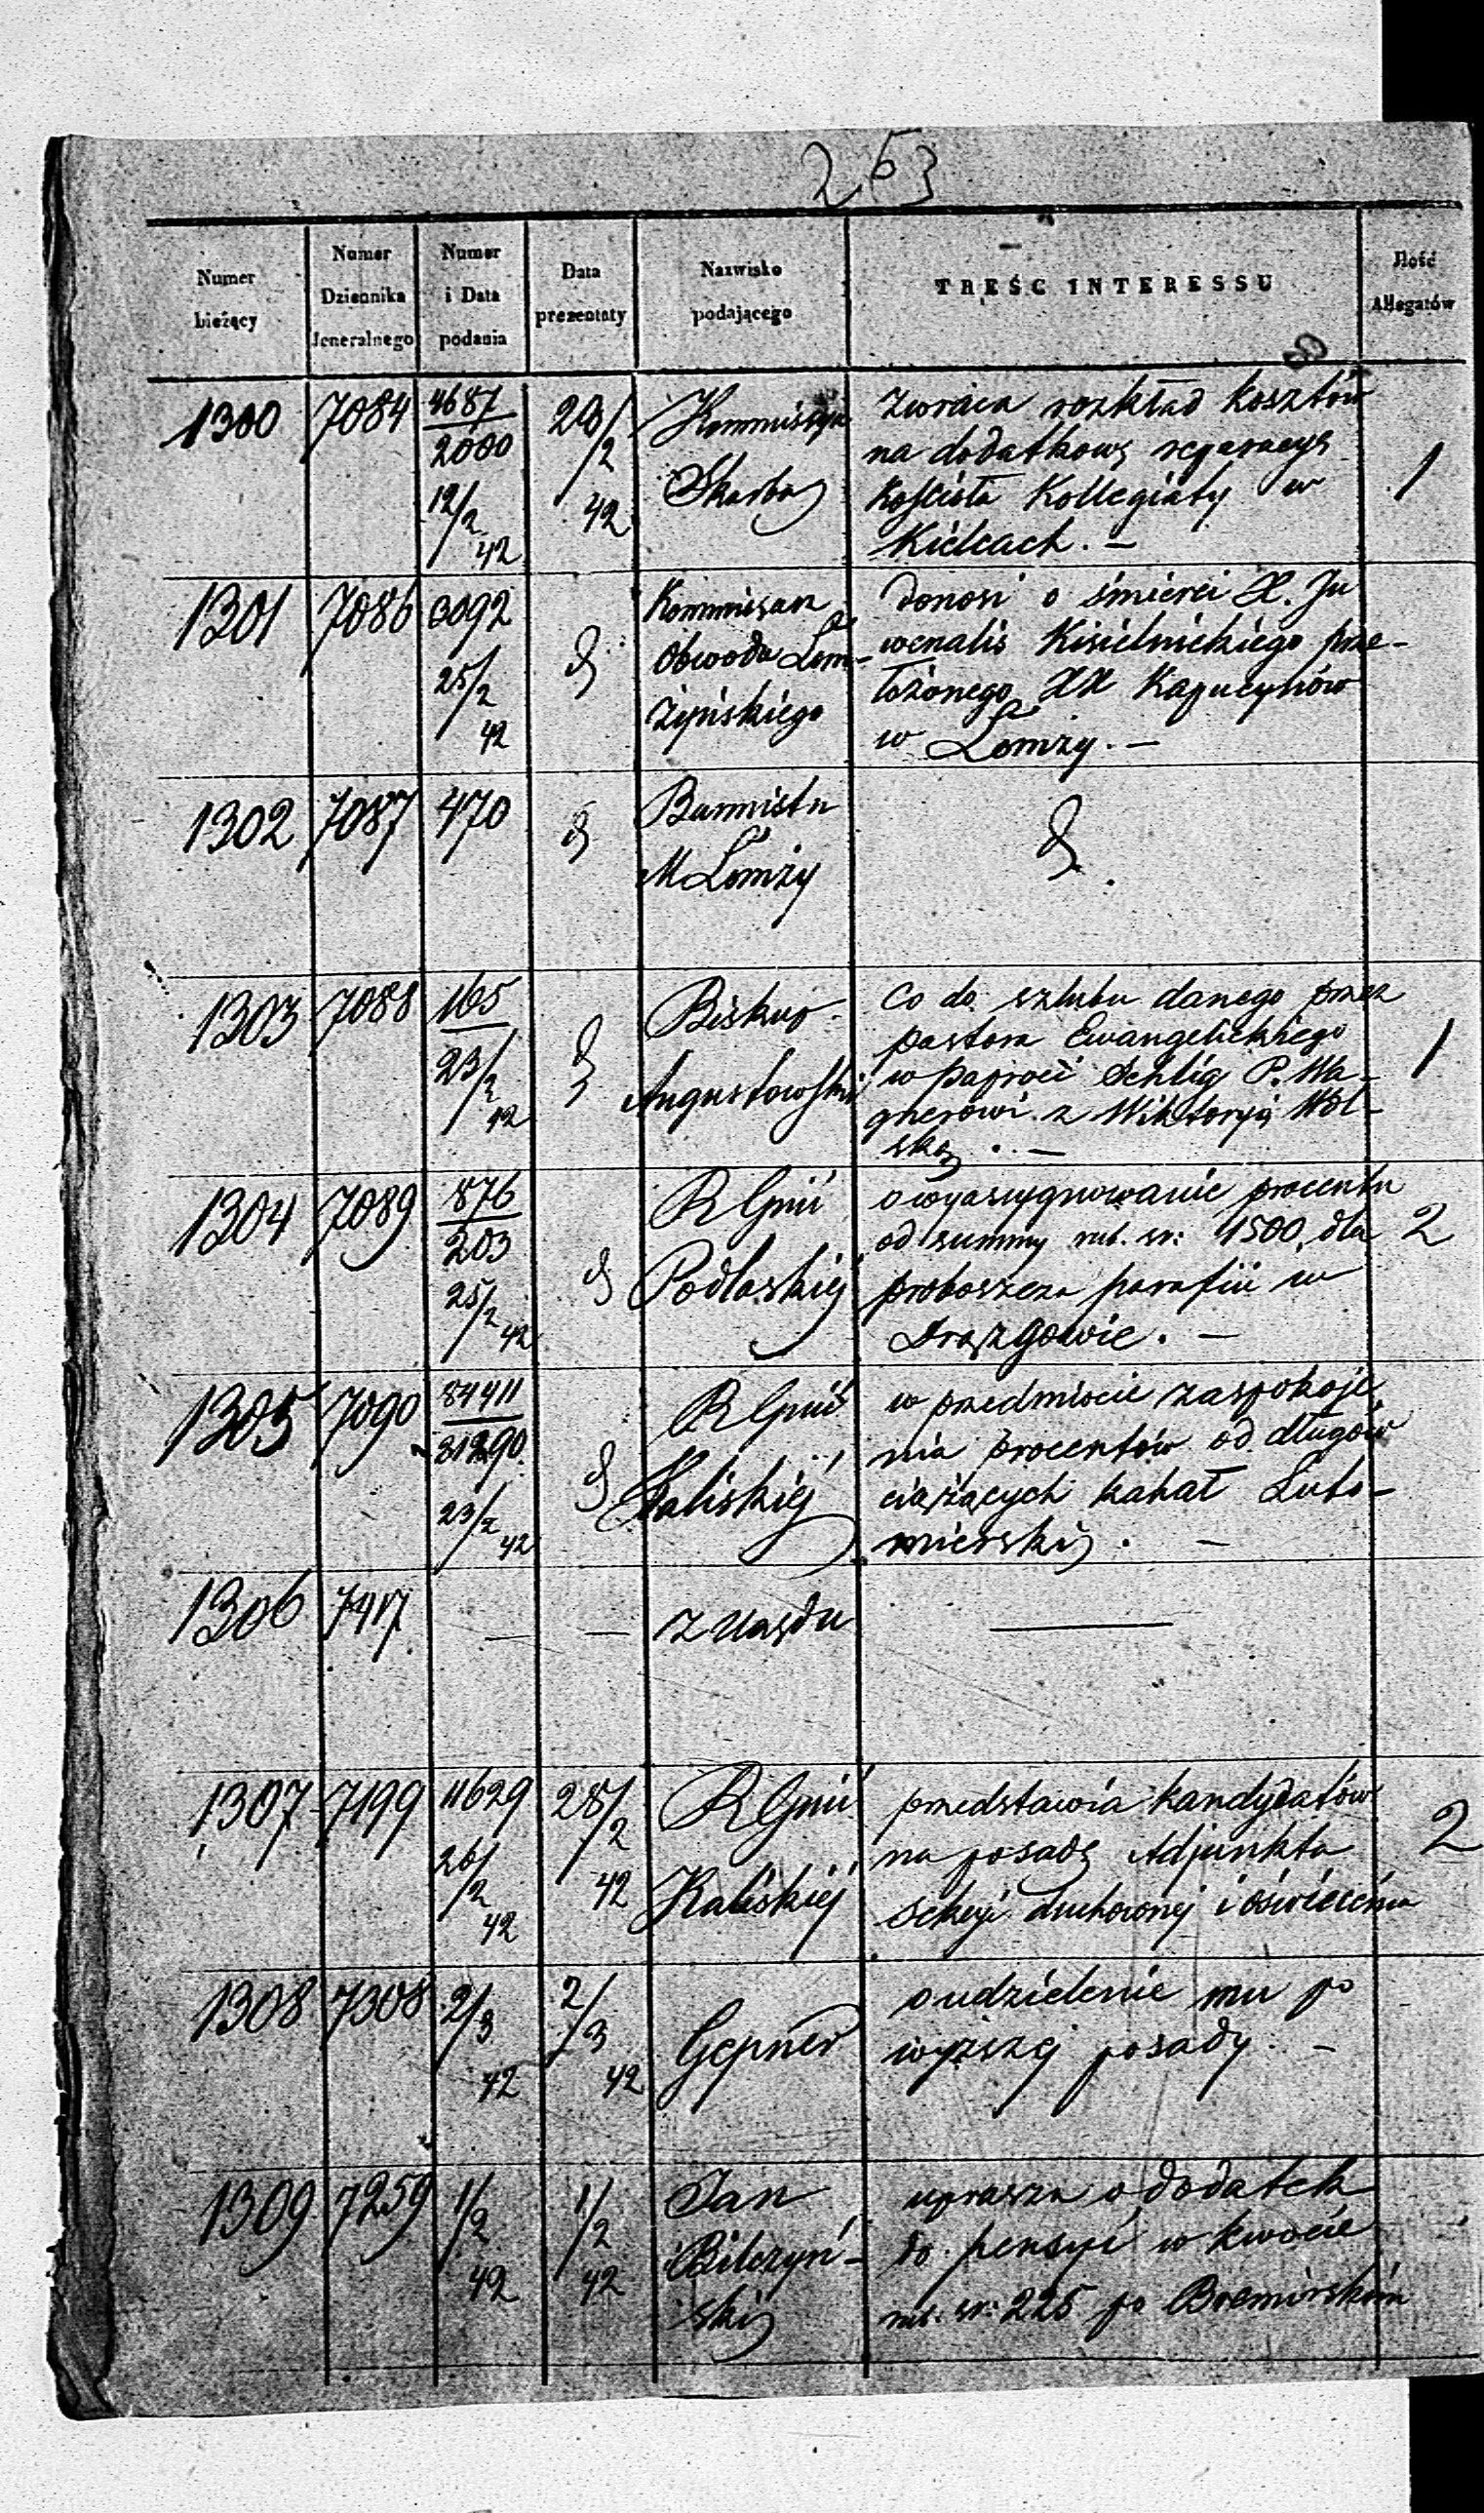 253
Numer bieżący
Numer Dziennika Jeneralnego
Numer i Data podania
Data prezentaty
Nazwisko podającego
TREŚĆ INTERESSU
Ilość Allegatów
1300 7084 4687/2000 12/2 42
28/2 42
Kommissya
Skarbu
Zwraca rozkład kosztów
na dodatkową reparacyą
Kościoła Kollegiaty w
Kielcach. —
1
1301 7086 3092 25/2 42
d
Kommissarz
Obwodu Łom-
żyńskiego
donosi o śmierci X. Ju
wenalis Kisielnickiego prze-
łożonego XX Kapucynów
w Łomży. —
1302 7087 470
d
Burmistrz
M Łomży
d.
1303 7088 165 23/2 42
d
Biskup
Augustowski
Co do szlubu danego przez
pastora Ewangelickiego
w Paproci Schlig P. Wa-
gnerowi z Wiktoryą Wol-
ską. —
1
1304 7089 876/203 25/2 42
d
R Gnii
Podlaskiej
o wyasygnowanie procentu
od summy rub. sr: 1500 dla
proboszcza parafii w
Drążgowie. —
2
1305 7090 84411/31290. 23/2 42
d
R Gnii
Kaliskiej
w przedmiocie zaspokoje
nia procentów od długów
ciążących kahał Luto-
mierski. —
1306 7417 — —
z Urzędu
—
1307 7199 11629 26/2 42
28/2 42
R Gnii
Kaliskiej
przedstawia kandydatów
na posadę Adjunkta
sekcyi duchownej i oświecenia
2
1308 7308 2/3 42
2/3 42
Gepner
o udzielenie mu po
wyższej posady. —
1309 7259 1/2 42
1/2 42
Jan
Bilczyń-
ski
uprasza o dodatek
do pensyi w kwocie
rub. sr: 225 po